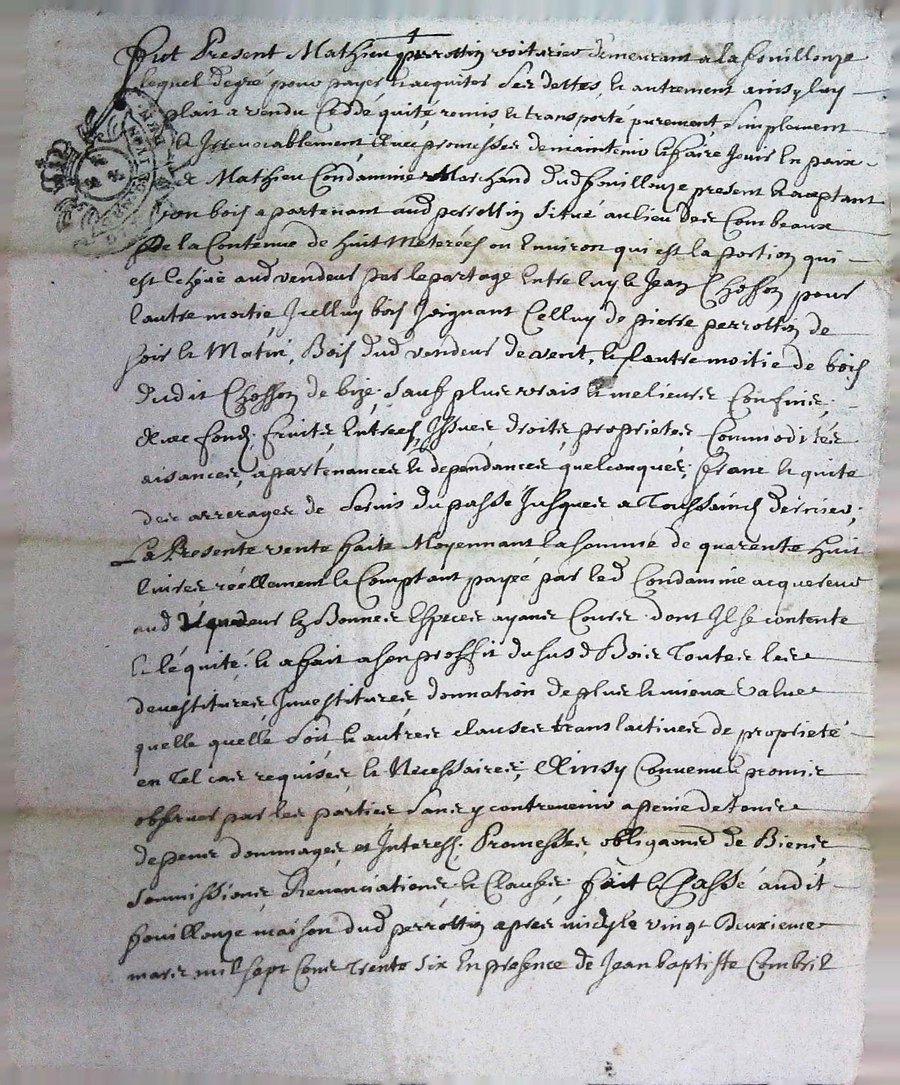 fut Present Mathieu perrottin voiturier demeurant a la fouillouze
lequel degré pour payer & acquiter ses dettes, & autrement ainsy luy
plait a vendu cedde quité remis & transporté purement simplement
& Irrevocablement, avec promesses de maintenir & faire Jouir En paix
a Mathieu Condamine Marchand dud fouillouze present & acceptant
un bois apartenant aud perrottin situé au lieu des Combeaux
de la Contenue de huit Meterées ou Environ qui est la portion qui
est Echeüe aud vendeur par le partage Entre luy & Jean Chosson pour
lautre moitié, Icelluy bois Joignant Celluy de pierre perrottin de
soir & Matin, Bois dud vendeur de vent, & lautre moitie de bois
dudit Chosson de bize, sauf plus vrais & melieurs Confins,
avec fonds fruits Entrées Issues droits proprietes Commodités
aisances, apartenances & dependances quelconques, franc & quite
des arrerages de servis du passé Jusques a Toussaints dernier;
La Presente vente faite Moyennant la somme de quarente huit
livres réellement & Comptant payée par led Condamine acquereur
aud vendeur En Bonnes Espices ayant Cours dont Il se contente
& lé quité, & a fait a son proffit dususd Bois Toutes les
devestitures Investitures, donnation de plus & mieux value
quelle quelle soit & autres clauses translactives de proprieté
en Tel cas requises & Necessaires; Ainsy Convenu & promis
observer par les parties sans y contrevenir a peine de tous
depens dommages, et Interests, Promesses, obligaons de Biens
soumissions, Renonciations & Clauses, fait & Passé audit
fouillouze maison dud perrottin apres midy le vingt deuxieme
mars mil sept Cens Trente six En presence de Jean baptiste Combril